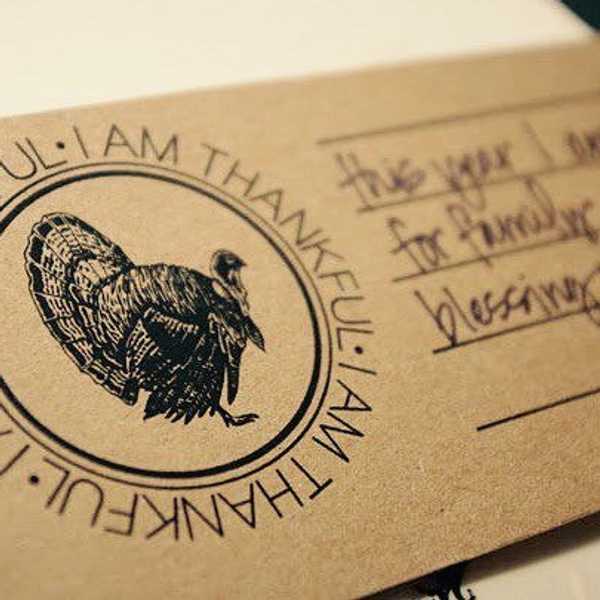 UL • I AM THANKFUL • I AM THANKFUL • I
this year I am
for family
blessing